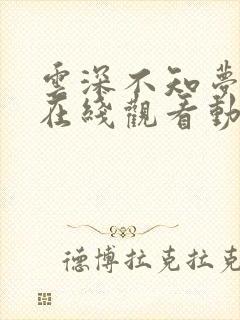 雲深不知夢
在綫觀看動
德博拉克拉克